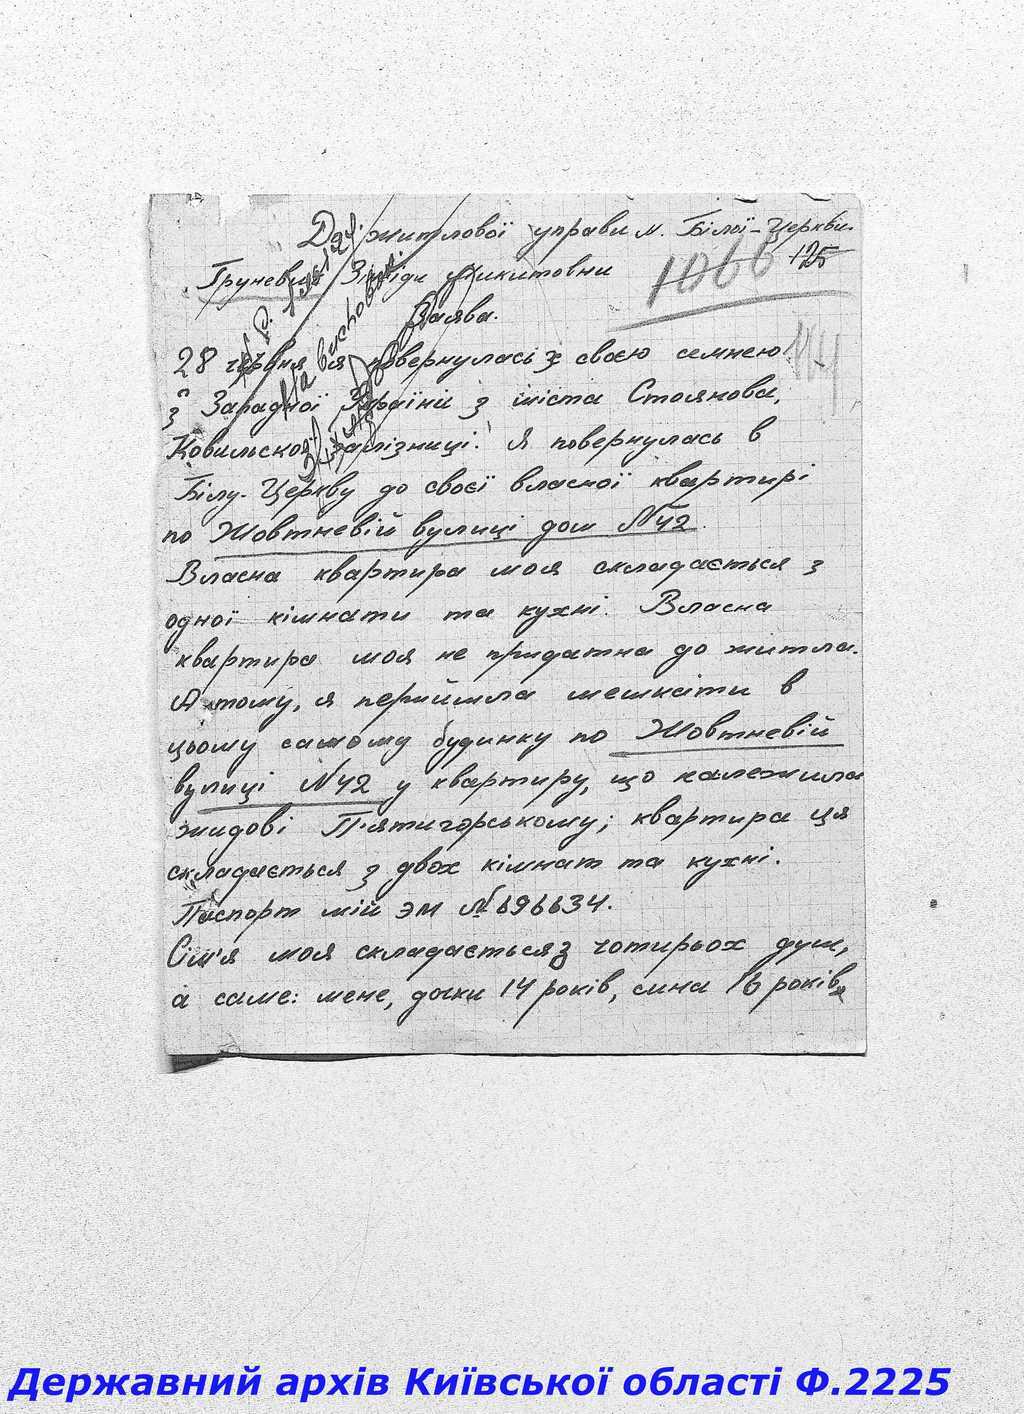 До житлової управи м. Білої-Церкви.
125
Груневич Зінаіди Микитовни
1066
Заява.
28 червня я повернулась з своєю семнею
з Западної України з міста Стоянова,
Ковильскої залізниці. Я повернулась в
Білу-Церкву до своєї власної квартирі
по Жовтневій вулиці дом №42.
Власна квартира моя складається з
одної кімнати та кухні. Власна
квартира моя не придатна до життла.
А тому, я перийшла мешкати в
цьому самому будинку по Жовтневій
вулиці №42 у квартиру, що належила
жидові П'ятигорському; квартира ця
складається з двох кімнат та кухні.
Паспорт мій ЭМ №696634.
Сім'я моя складається з чотирьох душ,
а саме: мене, дочки 14 років, сина 16 років,
Державний архів Київської області Ф.2225